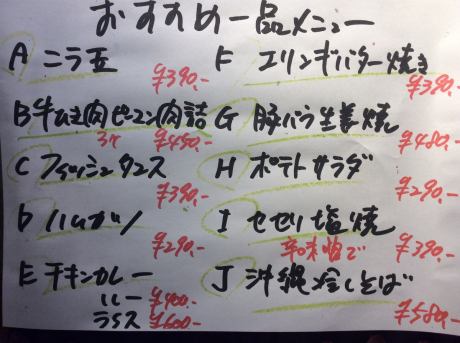 おすすめ一品メニュー
A ニラ玉 ¥390.-
F エリンギバター焼き ¥390.-
B 牛ひき肉ピーマン肉詰 3ヶ ¥450.-
G 豚バラ生姜焼 ¥480.-
C フィッシュタコス ¥390.-
H ポテトサラダ ¥290.-
D ハムカツ ¥290.-
I セセリ塩焼 辛味噌で ¥390.-
E チキンカレー
ルー ¥400.-
ライス ¥600.-
J 沖縄冷しそば ¥580.-